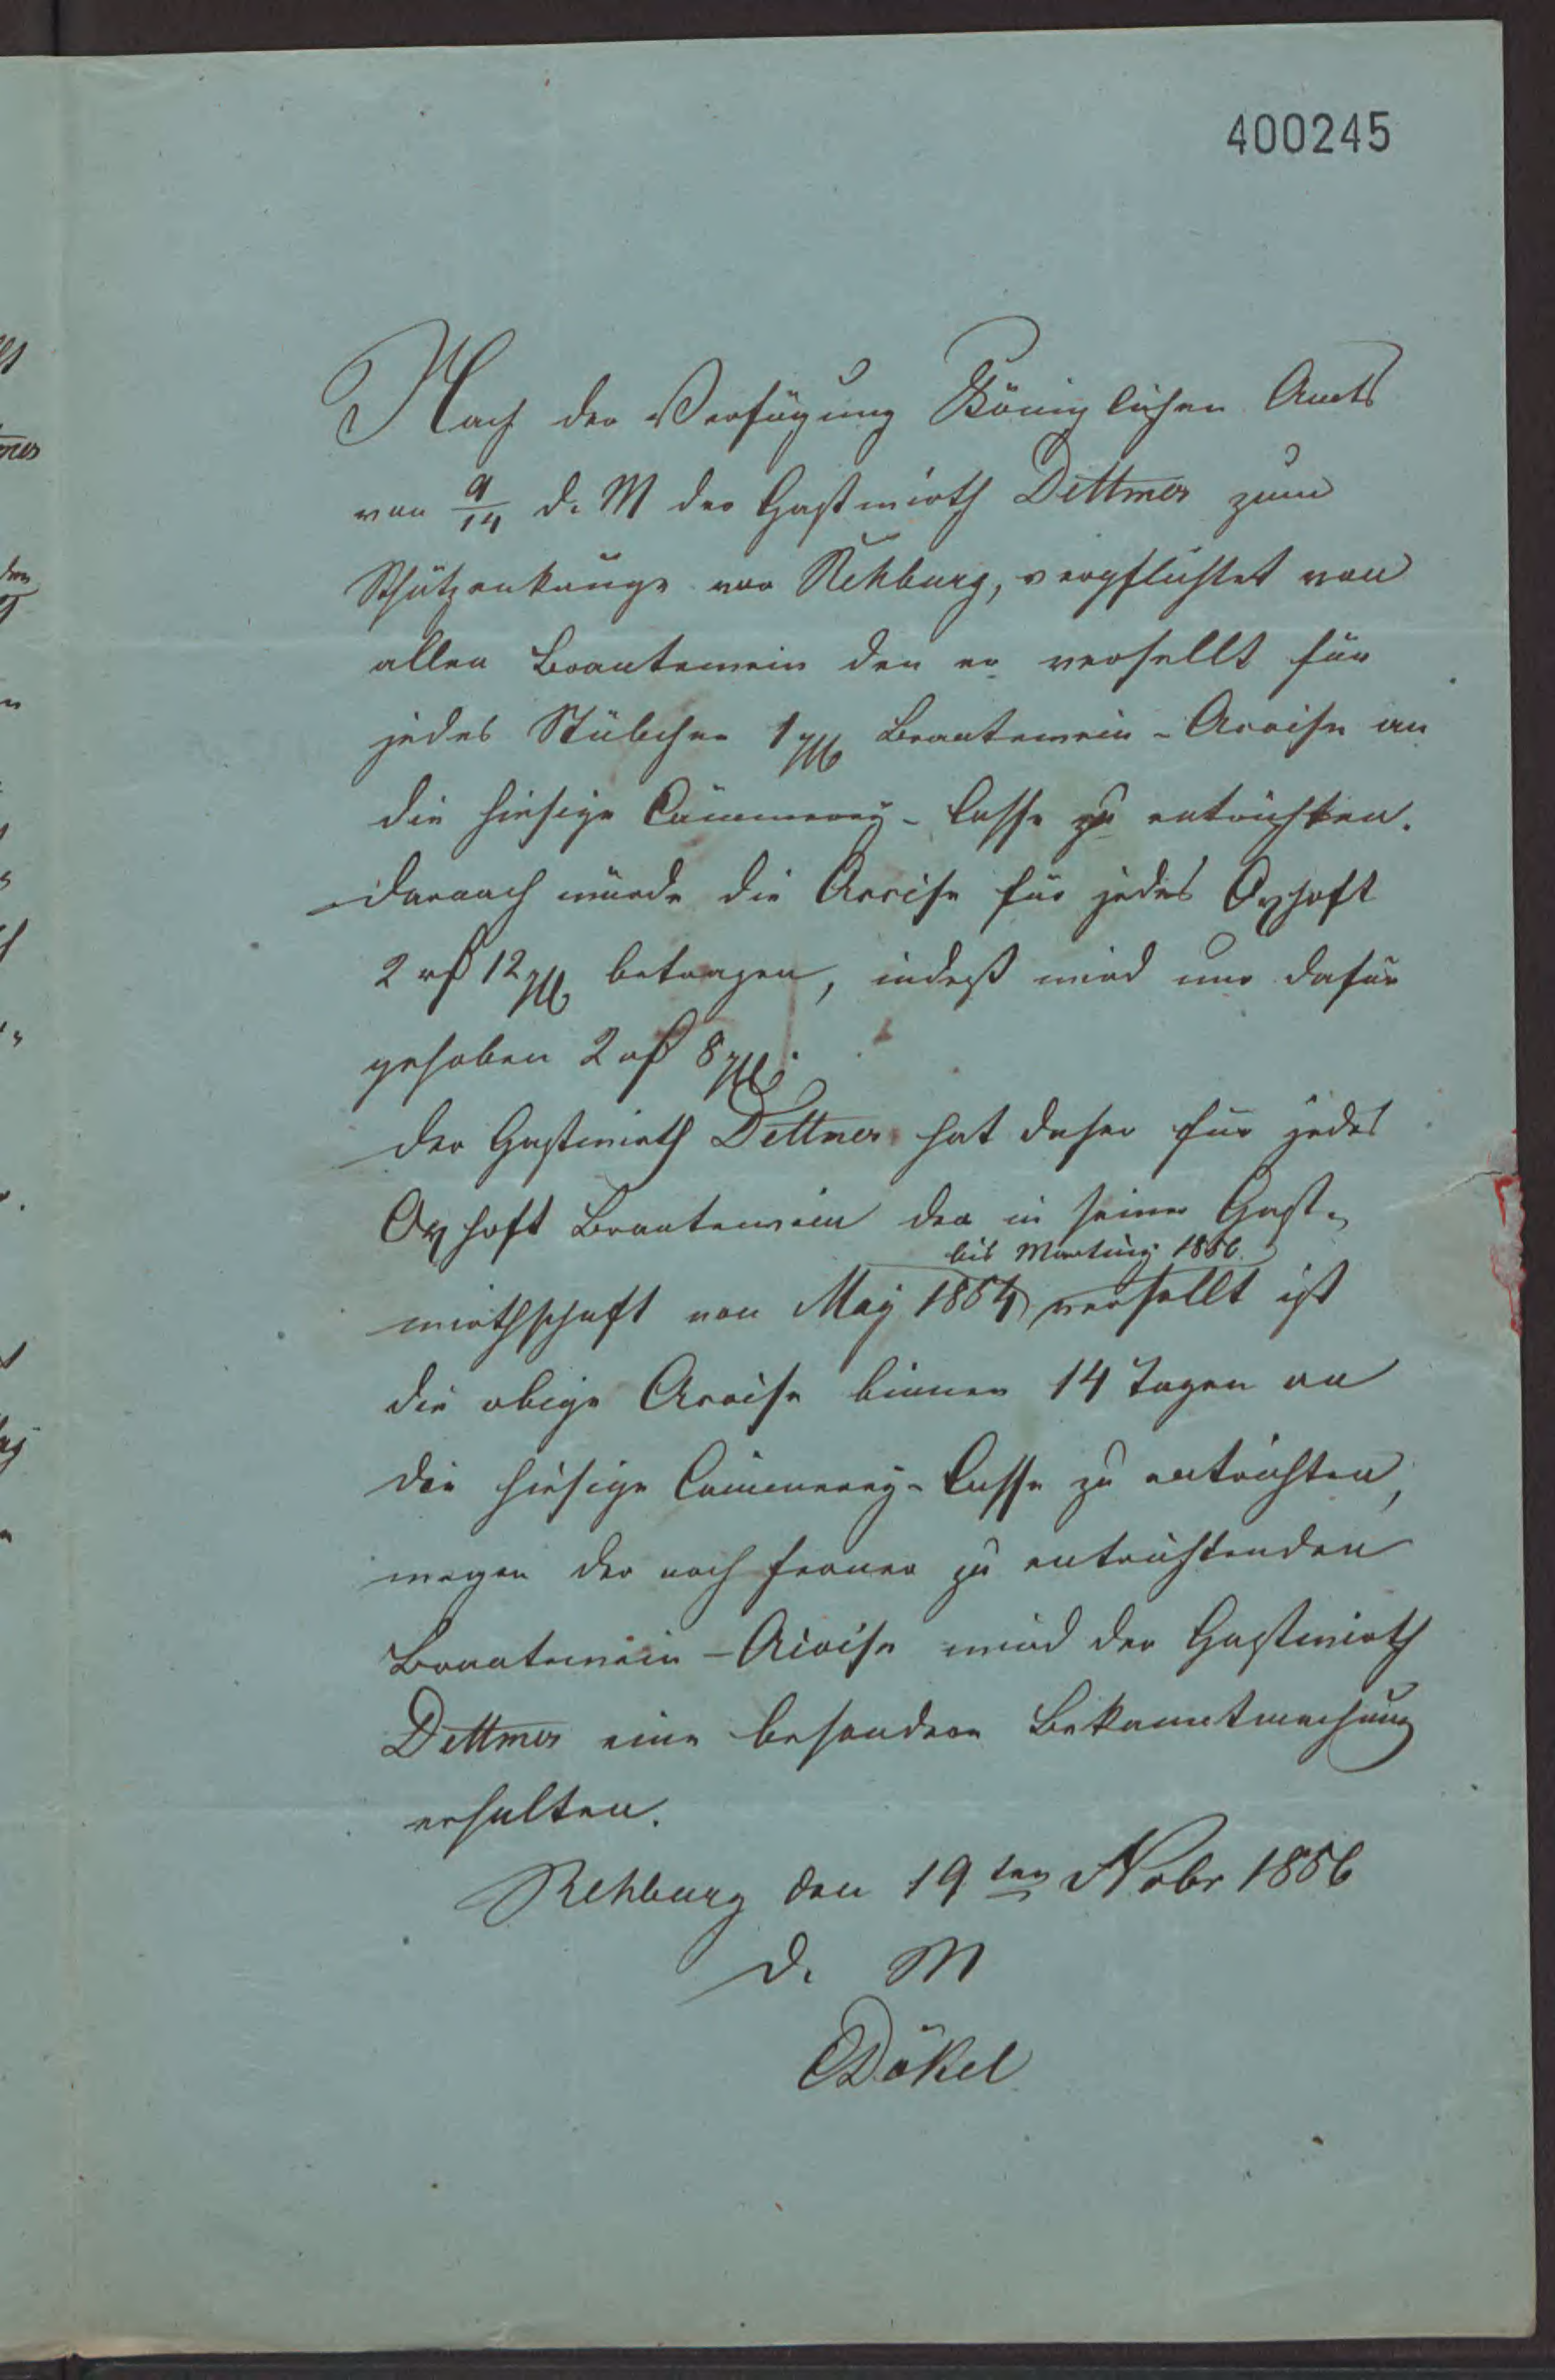 400245
Nach der Verfügung Königlichen Amts
von 9/14 d. M der Gastwirth Dettmer zum
Schützenkruge vor Rehburg, verpflichtet von
allen Brantewein den er versellt für
jedes Stübchen 1 ggr Brantewein-Accise an
die hiesige Cämmerey-Casse zu entrichten.
Darnach würde die Accise für jedes Oxhoft
2 rf 12 ggr betragen, indeß wird nur dafür
gehoben 2 rf 8 ggr.
Der Gastwirth Dettmer hat daher für jedes
Oxhoft Brantewein der in seiner Gast-
bis Martiny 1856
wirthschaft von May 1854 versellt ist
die obige Accise binnen 14 Tagen an
die hiesige Cämmerey-Casse zu entrichten,
wegen der noch ferner zu entrichtenden
Brantewein-Accise wird der Gastwirth
Dettmer eine besondere Bekanntmachung
erhalten.
Rehburg den 19ten Nobr 1856
D. M
Dökel